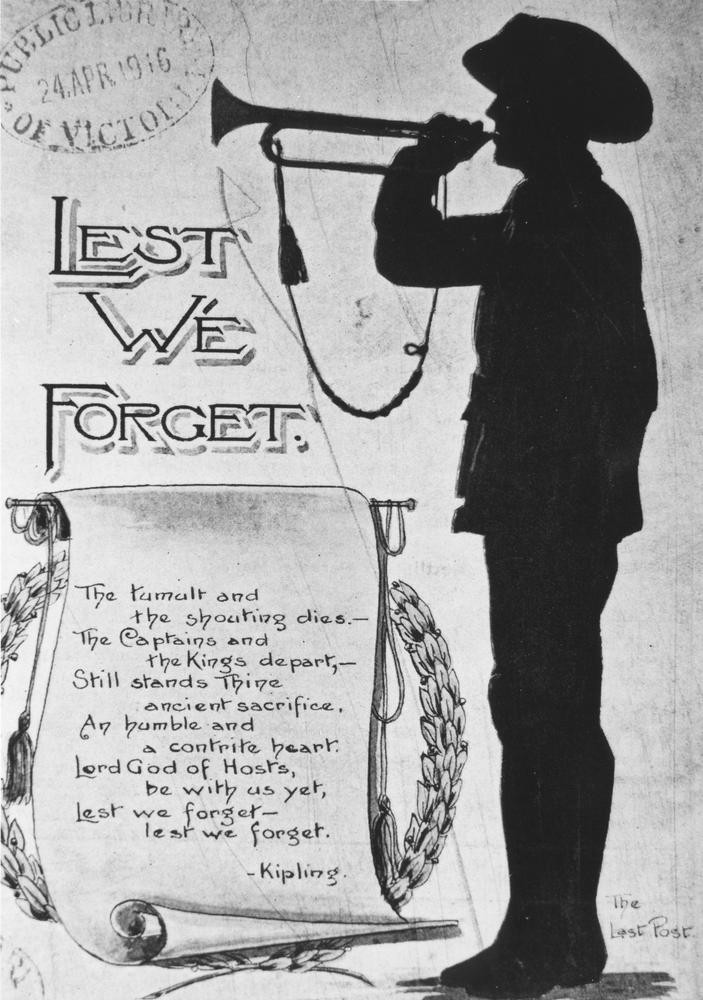 PUBLIC LIBR
24.APR.1916
OF VICTORIA
LEST
WE
FORGET.
The tumult and
the shouting dies.—
The Captains and
the Kings depart,—
Still stands Thine
ancient sacrifice,
An humble and
a contrite heart.
Lord God of Hosts,
be with us yet,
Lest we forget—
lest we forget.
-Kipling.
The
Last Post.